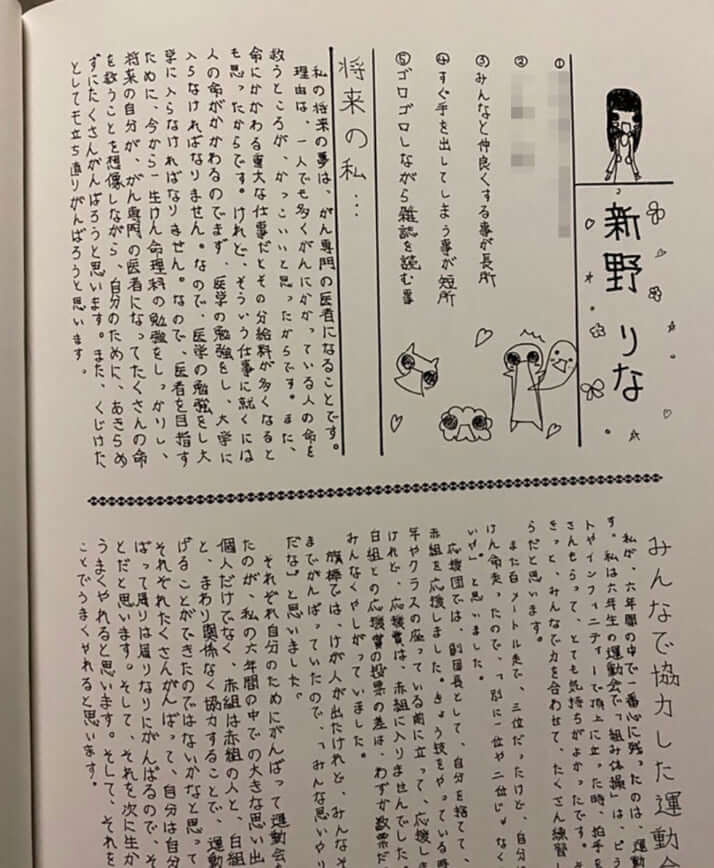 新野りな
①
②
③みんなと仲良くする事が長所
④すぐ手を出してしまう事が短所
⑤ゴロゴロしながら雑誌を読む事
将来の私…
私の将来の夢は、がん専門の医者になることです。
理由は、一人でも多くがんにかかっている人の命を
救うところが、かっこいいと思ったからです。また、
命にかかわる重大な仕事だとその分給料が多くなると
も思ったからです。けれど、そういう仕事に就くには
人の命がかかわるのでまず、医学の勉強をし、大学に
入らなければなりません。なので、医学の勉強をし大
学に入らなければなりません。なので、医者を目指す
ために、今から一生けん命理科の勉強をしっかりし、
将来の自分が、がん専門の医者になってたくさんの命
を救うことを想像しながら、自分のために、あきらめ
ずにたくさんがんばろうと思います。また、くじけた
としても立ち直りがんばろうと思います。
みんなで協力した運動会
私が、六年間の中で一番心に残ったのは、運動
す。私は六年生の運動会で「組み体操」は、どう
トやインフィニティーで頂上に立った時、拍手を
さんもらって、とても気持ちがよかったです。
きっと、みんなで力を合わせて、たくさん練習し
らだと思います。
また百メートル走で、三位だったけど、自分
けん命走ったので、「別に一位や二位じゃなく
いや。」と思いました。
応援団では、副団長として、自分を捨てて、
赤組を応援しました。きょう技をやっている時
年やクラスの座っている前に立って、応援しま
けれど、応援賞は、赤組に入りませんでした。
白組との応援賞の投票の差は、わずか数票だ
みんなくやしがっていました。
旗棒では、けが人が出たけれど、みんなそ
までがんばっていたので、「みんな思いやり
だな。」と思いました。
それぞれ自分のためにがんばって運動会
たのが、私の六年間の中での大きな思い出
個人だけでなく、赤組は赤組の人と、白組
と、まわり関係なく協力することで、運動
げることができたのではないかなと思って
それぞれたくさんがんばって、自分は自分
ばって周りは周りなりにがんばるので、そ
とだと思います。そして、それを次に生か
うまくやれると思います。そして、それを
ことでうまくやれると思います。